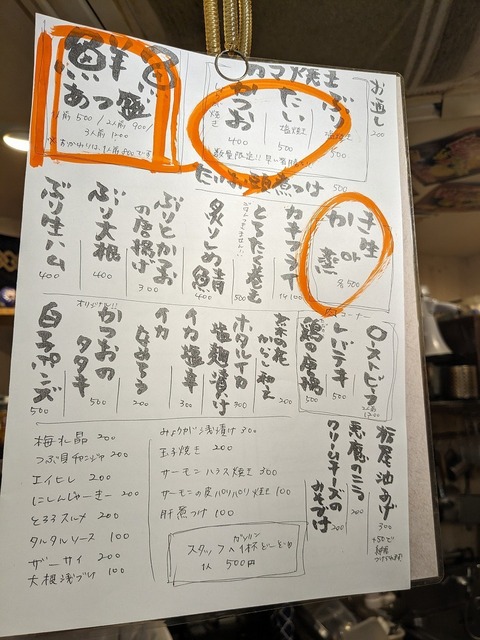 お通し 200
カマ焼き
ぶり 塩焼き 500
たい 塩焼き 500
かつお 400
数量限定!!
鮮魚
あっ盛
1人前 500 / 2人前 900 /
3人前 1200
頭煮つけ 500
生 or 蒸
かき
各500
カキフライ
とろたく巻き 500
炙りしめ鯖 400
ぶりとかつおの唐揚げ 300
ぶり大根 400
ぶり生ハム 400
コーナー
ローストビーフ 1200
レバテキ 500
鶏の唐揚 500
菜の花からし和え 200
ホタルイカ
塩麹漬け 300
イカ塩辛 300
イカなめろう 200
オリジナル!!
かつおのタタキ 500
白子ポンズ 500
栃尾油あげ 300
悪魔のニラ 200
クリームチーズのみそづけ 200
みょうが浅漬け 300
玉子焼き 200
サーモンハラス焼き 300
サーモンの皮パリパリ焼き 100
肝煮つけ 100
梅水晶 200
つぶ貝チャンジャ 200
エイヒレ 200
にしんじゃーきー 200
とろろスルメ 200
タルタルソース 100
ザーサイ 200
大根浅づけ 100
スタッフへ1杯どーぞ
1人 500円